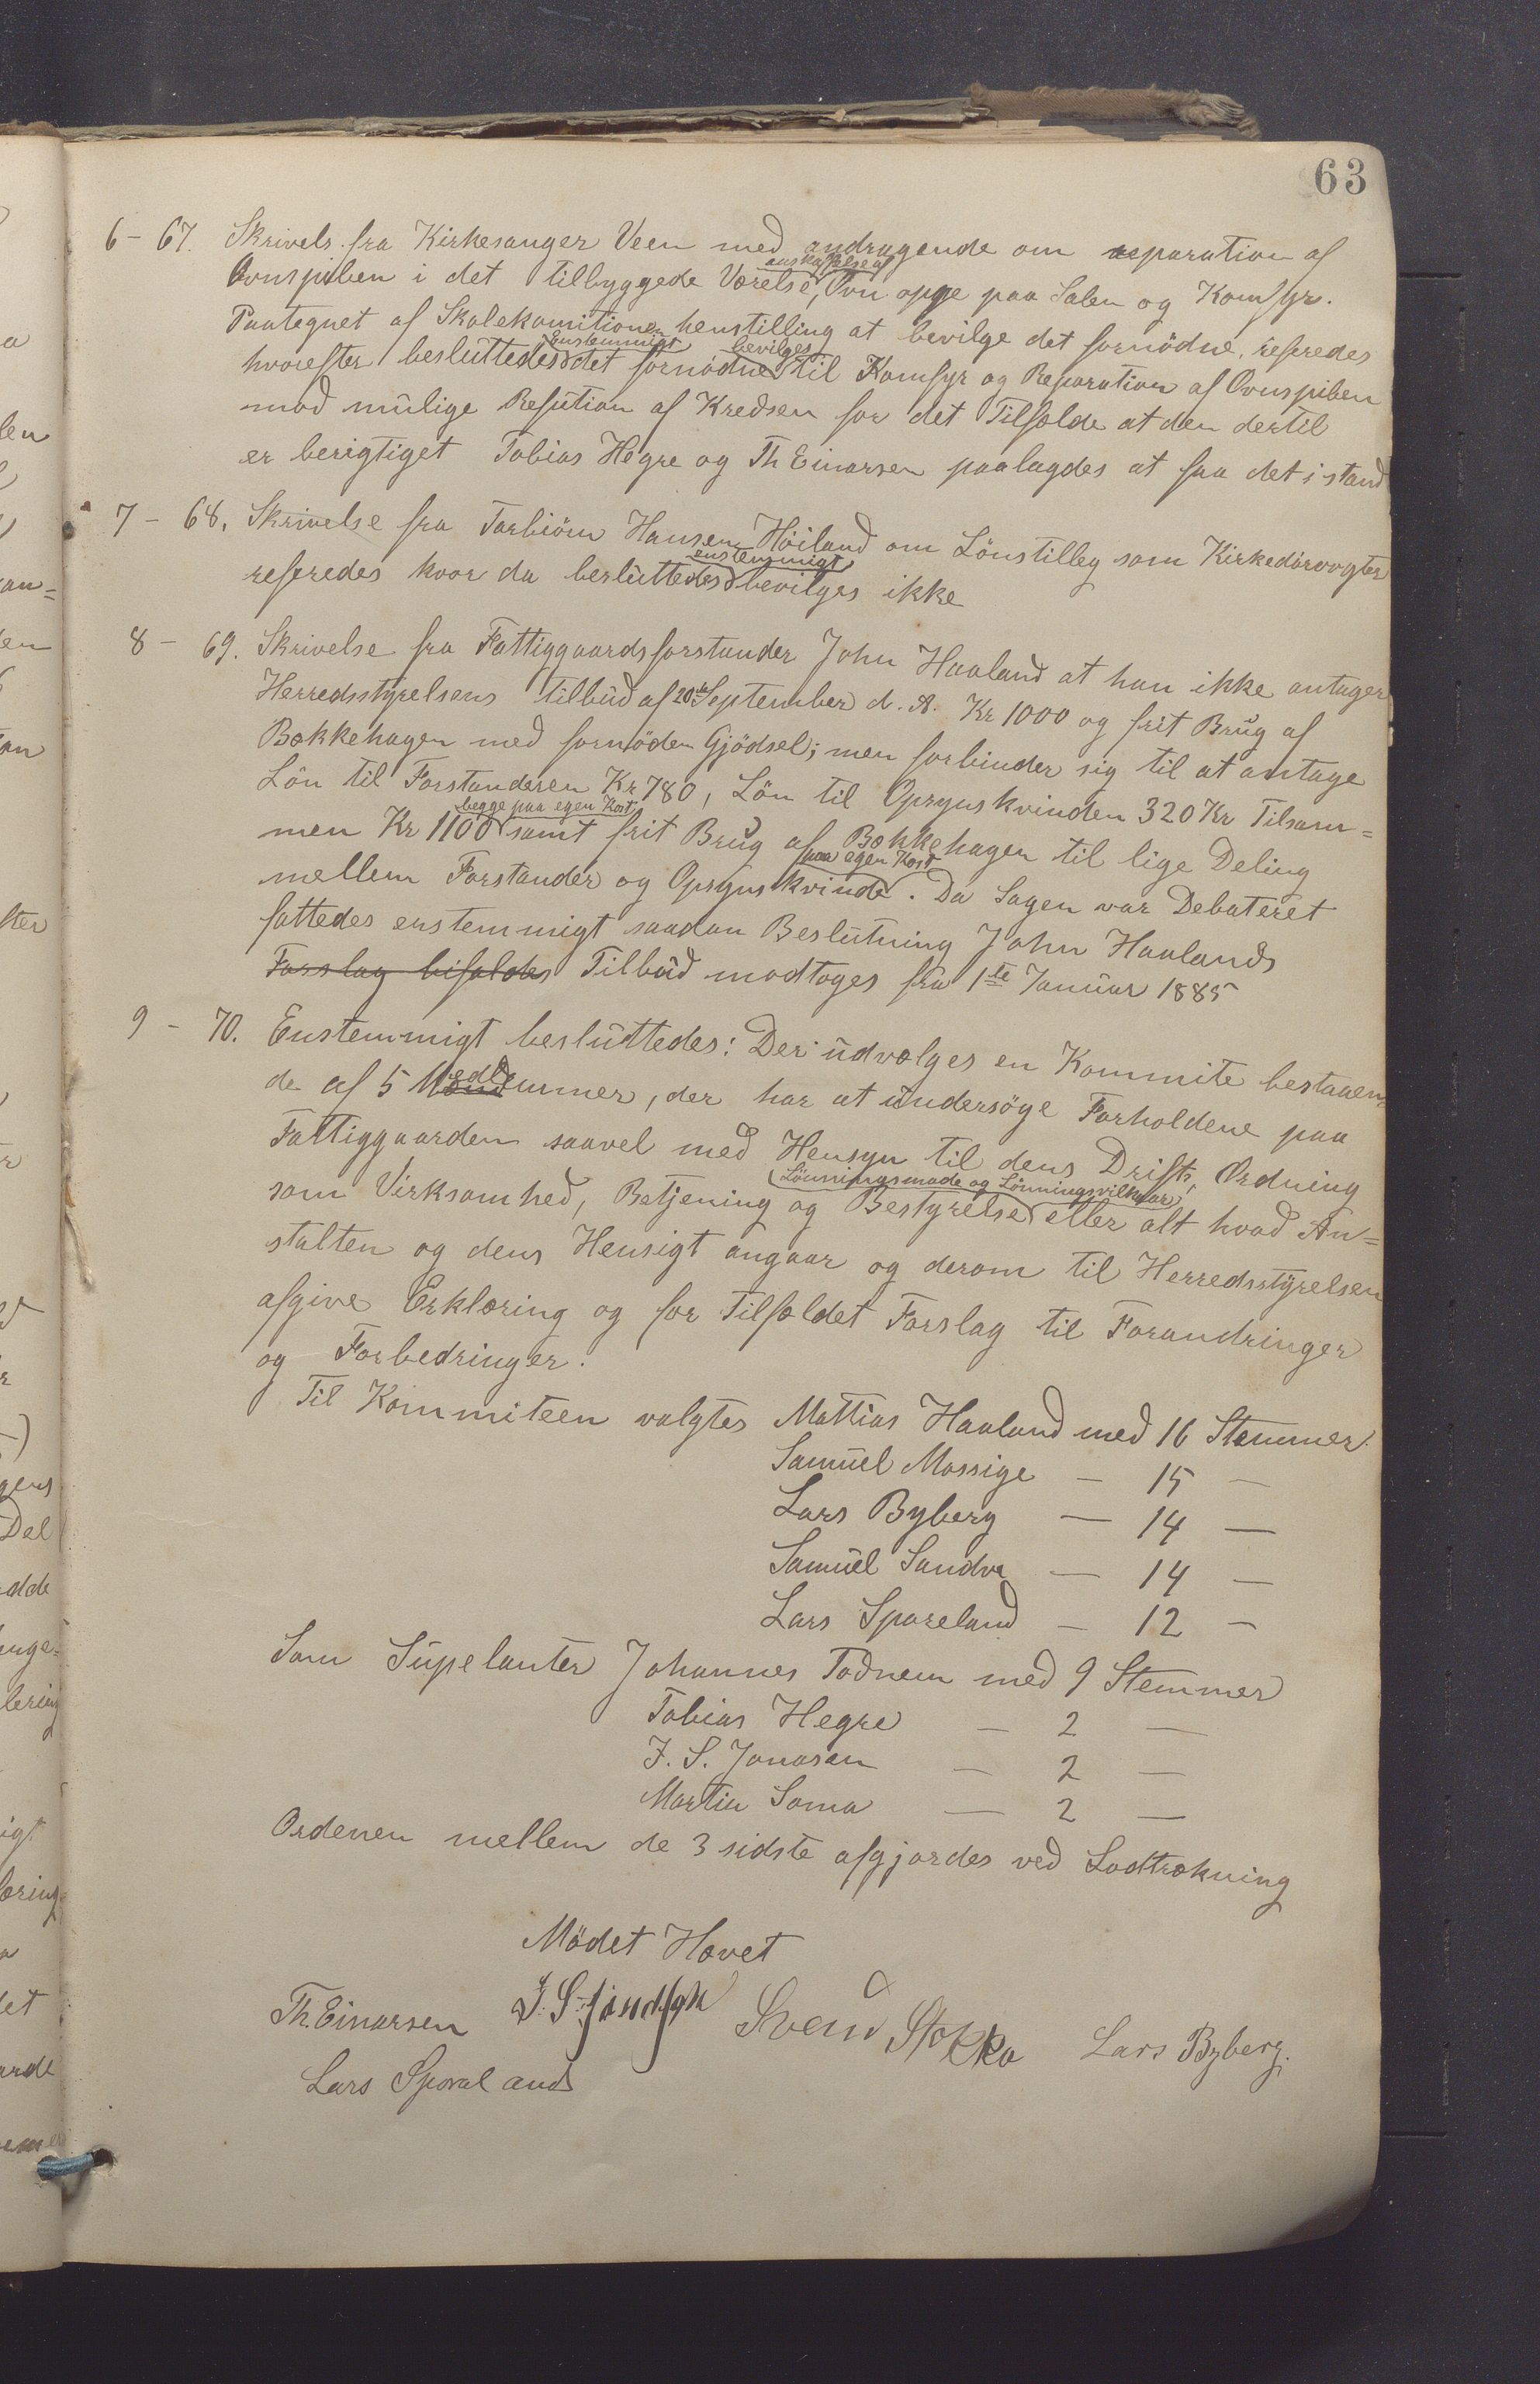 63
6 - 67. Skrivels. fra Kirkesanger Veen med andragende om reparation af
anskaffelse af
Ovnspiben i det tilbyggede Værelse, Ovn oppe paa Salen og Komfyr.
Paategnet af Skolekomitionen henstilling at bevilge det fornödne, refredes
Enstemmigt bevilges
hvorefter besluttedes det fornödne til Komfyr og Reparation af Ovnspiben
mod mulige Refution af Kredsen for det Tilfælde at den dertil
er berigtiget Tobias Hegre og Th Einarsen paalagdes at faa det i stand
7 - 68. Skrivelse fra Torbiörn Hansen Höiland om Lönstilleg som Kirkedörvogter
enstemmigt
refredes hvor da besluttedes bevilges ikke
8 - 69. Skrivelse fra Fattiggaardsforstander John Haaland at han ikke antager
Herredsstyrelsens tilbud af 20de September d. A. Kr 1000 og frit Brug af
Bakkehagen med fornöden Gjödsel; men forbinder sig til at antage
Lön til Forstanderen Kr 780, Lön til Opsynskvinden 320 Kr Tilsam=
begge paa egen Kost
men Kr 1100 samt frit Brug af Bakkehagen til lige Deling
paa egen Kost
mellem Forstander og Opsynskvinde. Da Sagen var Debateret
fattedes enstemmigt saadan Beslutning John Haalands
Forslag bifaldes Tilbud modtoges fra 1te Januar 1885
9 - 70. Enstemmigt besluttedes: Der udvælges en Kommite bestaaen=
de af 5 Medlemmer, der har at undersöge Forholdene paa
Fattiggaarden saavel med Hensyn til dens Drift, Ordning
Lönningsmaade og Lönningsvilkaar,
som Virksomhed, Betjening og Bestyrelse eller alt hvad An=
stalten og dens Hensigt angaar og derom til Herredsstyrelsen
afgive Erklæring og for Tilfældet Forslag til Forandringer
og Forbedringer.
Til Kommiteen valgtes Mattias Haaland med 16 Stemmer.
Samuel Mossige — 15 —
Lars Byberg — 14 —
Samuel Sandve — 14 —
Lars Spareland — 12 —
Som Supelanter Johannes Todnem med 9 Stemmer
Tobias Hegre — 2 —
J. S. Jonasen — 2 —
Martin Soma — 2 —
Ordenen mellem de 3 sidste afgjordes ved Lodtrækning
Mödet Hævet
Th. Einarsen J. S. Jonassen Svend Stokka Lars Byberg.
Lars Sporaland